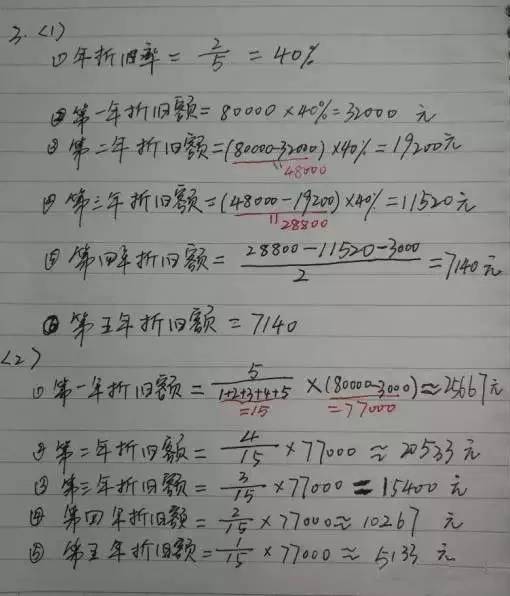 3.<1>
①年折旧率=2/5=40%
②第一年折旧额=80000×40%=32000 元
③第二年折旧额=(80000-32000)×40%=19200元
48000
④第三年折旧额=(48000-19200)×40%=11520元
28800
⑤第四年折旧额=28800-11520-3000/2=7140元
⑥第五年折旧额=7140
<2>
①第一年折旧额=5/1+2+3+4+5×(80000-3000)≈25667元
=15 =77000
②第二年折旧额=4/15×77000≈20533元
③第三年折旧额=3/15×77000=15400元
④第四年折旧额=2/15×77000≈10267 元
⑤第五年折旧额=1/15×77000≈5133 元